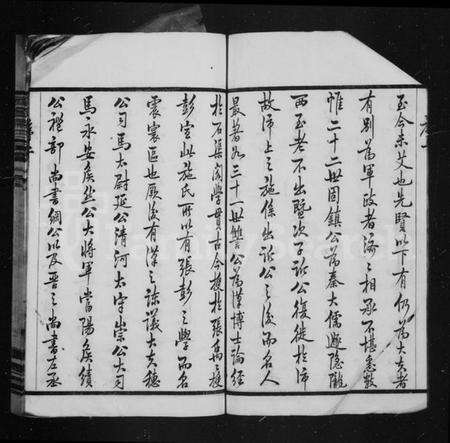 至今未艾也先賢以下有仍為大夫者
有別為軍政者溢之相承不堪悉數
惟二十二世固鎮公為秦大儒避隱隴
西至老不出暨次子訟公復徙於沛
故沛上之施係出訟公之後而名人
最著如三十一世讐公為漢博士論經
於石渠閣學貫古今授於張禹禹授
彭宣此施氏所以有張彭之學而名
震寰區也厥後有漢之諫議大夫穗
公司馬太尉延公清河太守崇公大司
馬永安侯然公大將軍當陽侯績
公禮部尚書綱公以及晉之尚書左丞